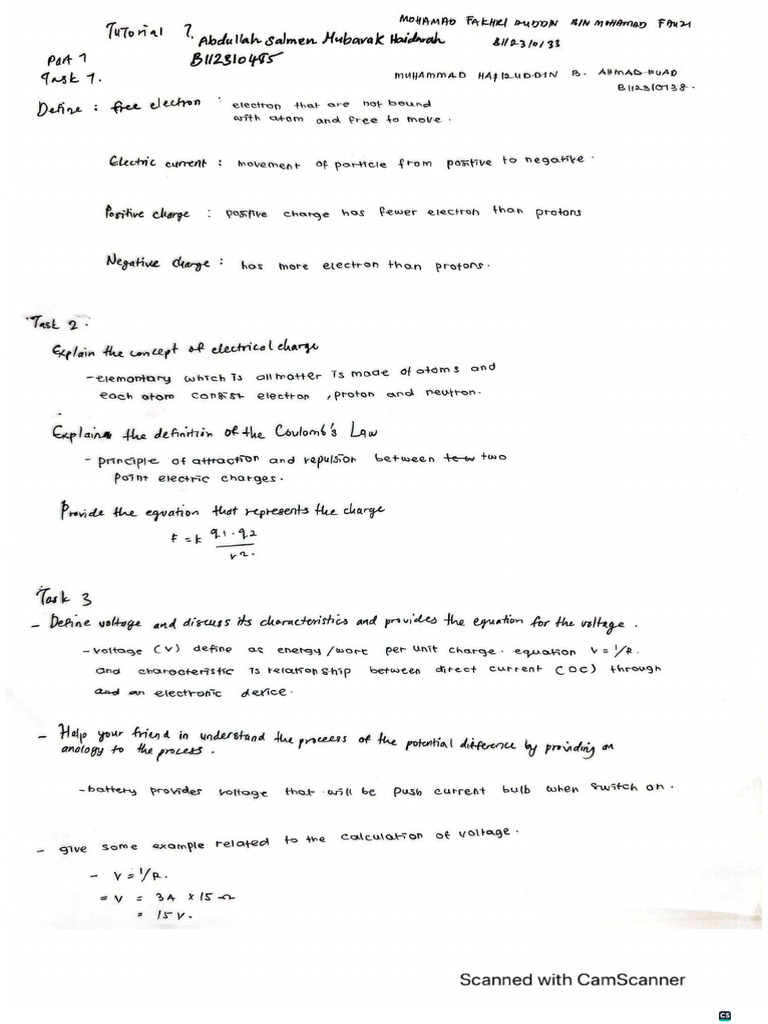 Tutorial 1.
MOHAMAD FAKHRI DUDDIN BIN MOHAMAD FAUZI
Abdullah Salmen Mubarak Haidarah
B112310133
Part 1
B112310485
Task 1.
MUHAMMAD HAFIZUDDIN B. AHMAD FUAD
B112310138.
Define : free electron : electron that are not bound
with atom and free to move.
Electric current : movement of particle from positive to negative.
Positive charge : positive charge has fewer electron than protons
Negative charge : has more electron than protons.
Task 2.
Explain the concept of electrical charge
- elemontary which is all matter is made of atoms and
each atom consist electron , proton and neutron.
Explain the definition of the Coulomb's Law
- principle of attraction and repulsion between two
point electric charges.
Provide the equation that represents the charge
F = k q1 . q2
r2.
Task 3
- Define voltage and discuss its characteristics and provides the equation for the voltage.
- voltage (V) define as energy/work per unit charge. equation V = I/R.
and characteristic is relationship between direct current (DC) through
and an electronic device.
- Help your friend in understand the process of the potential difference by providing an
anology to the process.
- battery provides voltage that will be push current bulb when switch on.
- give some example related to the calculation of voltage.
- V = I/R.
= V = 3A x 15 Ω
= 15 V.
Scanned with CamScanner
CS